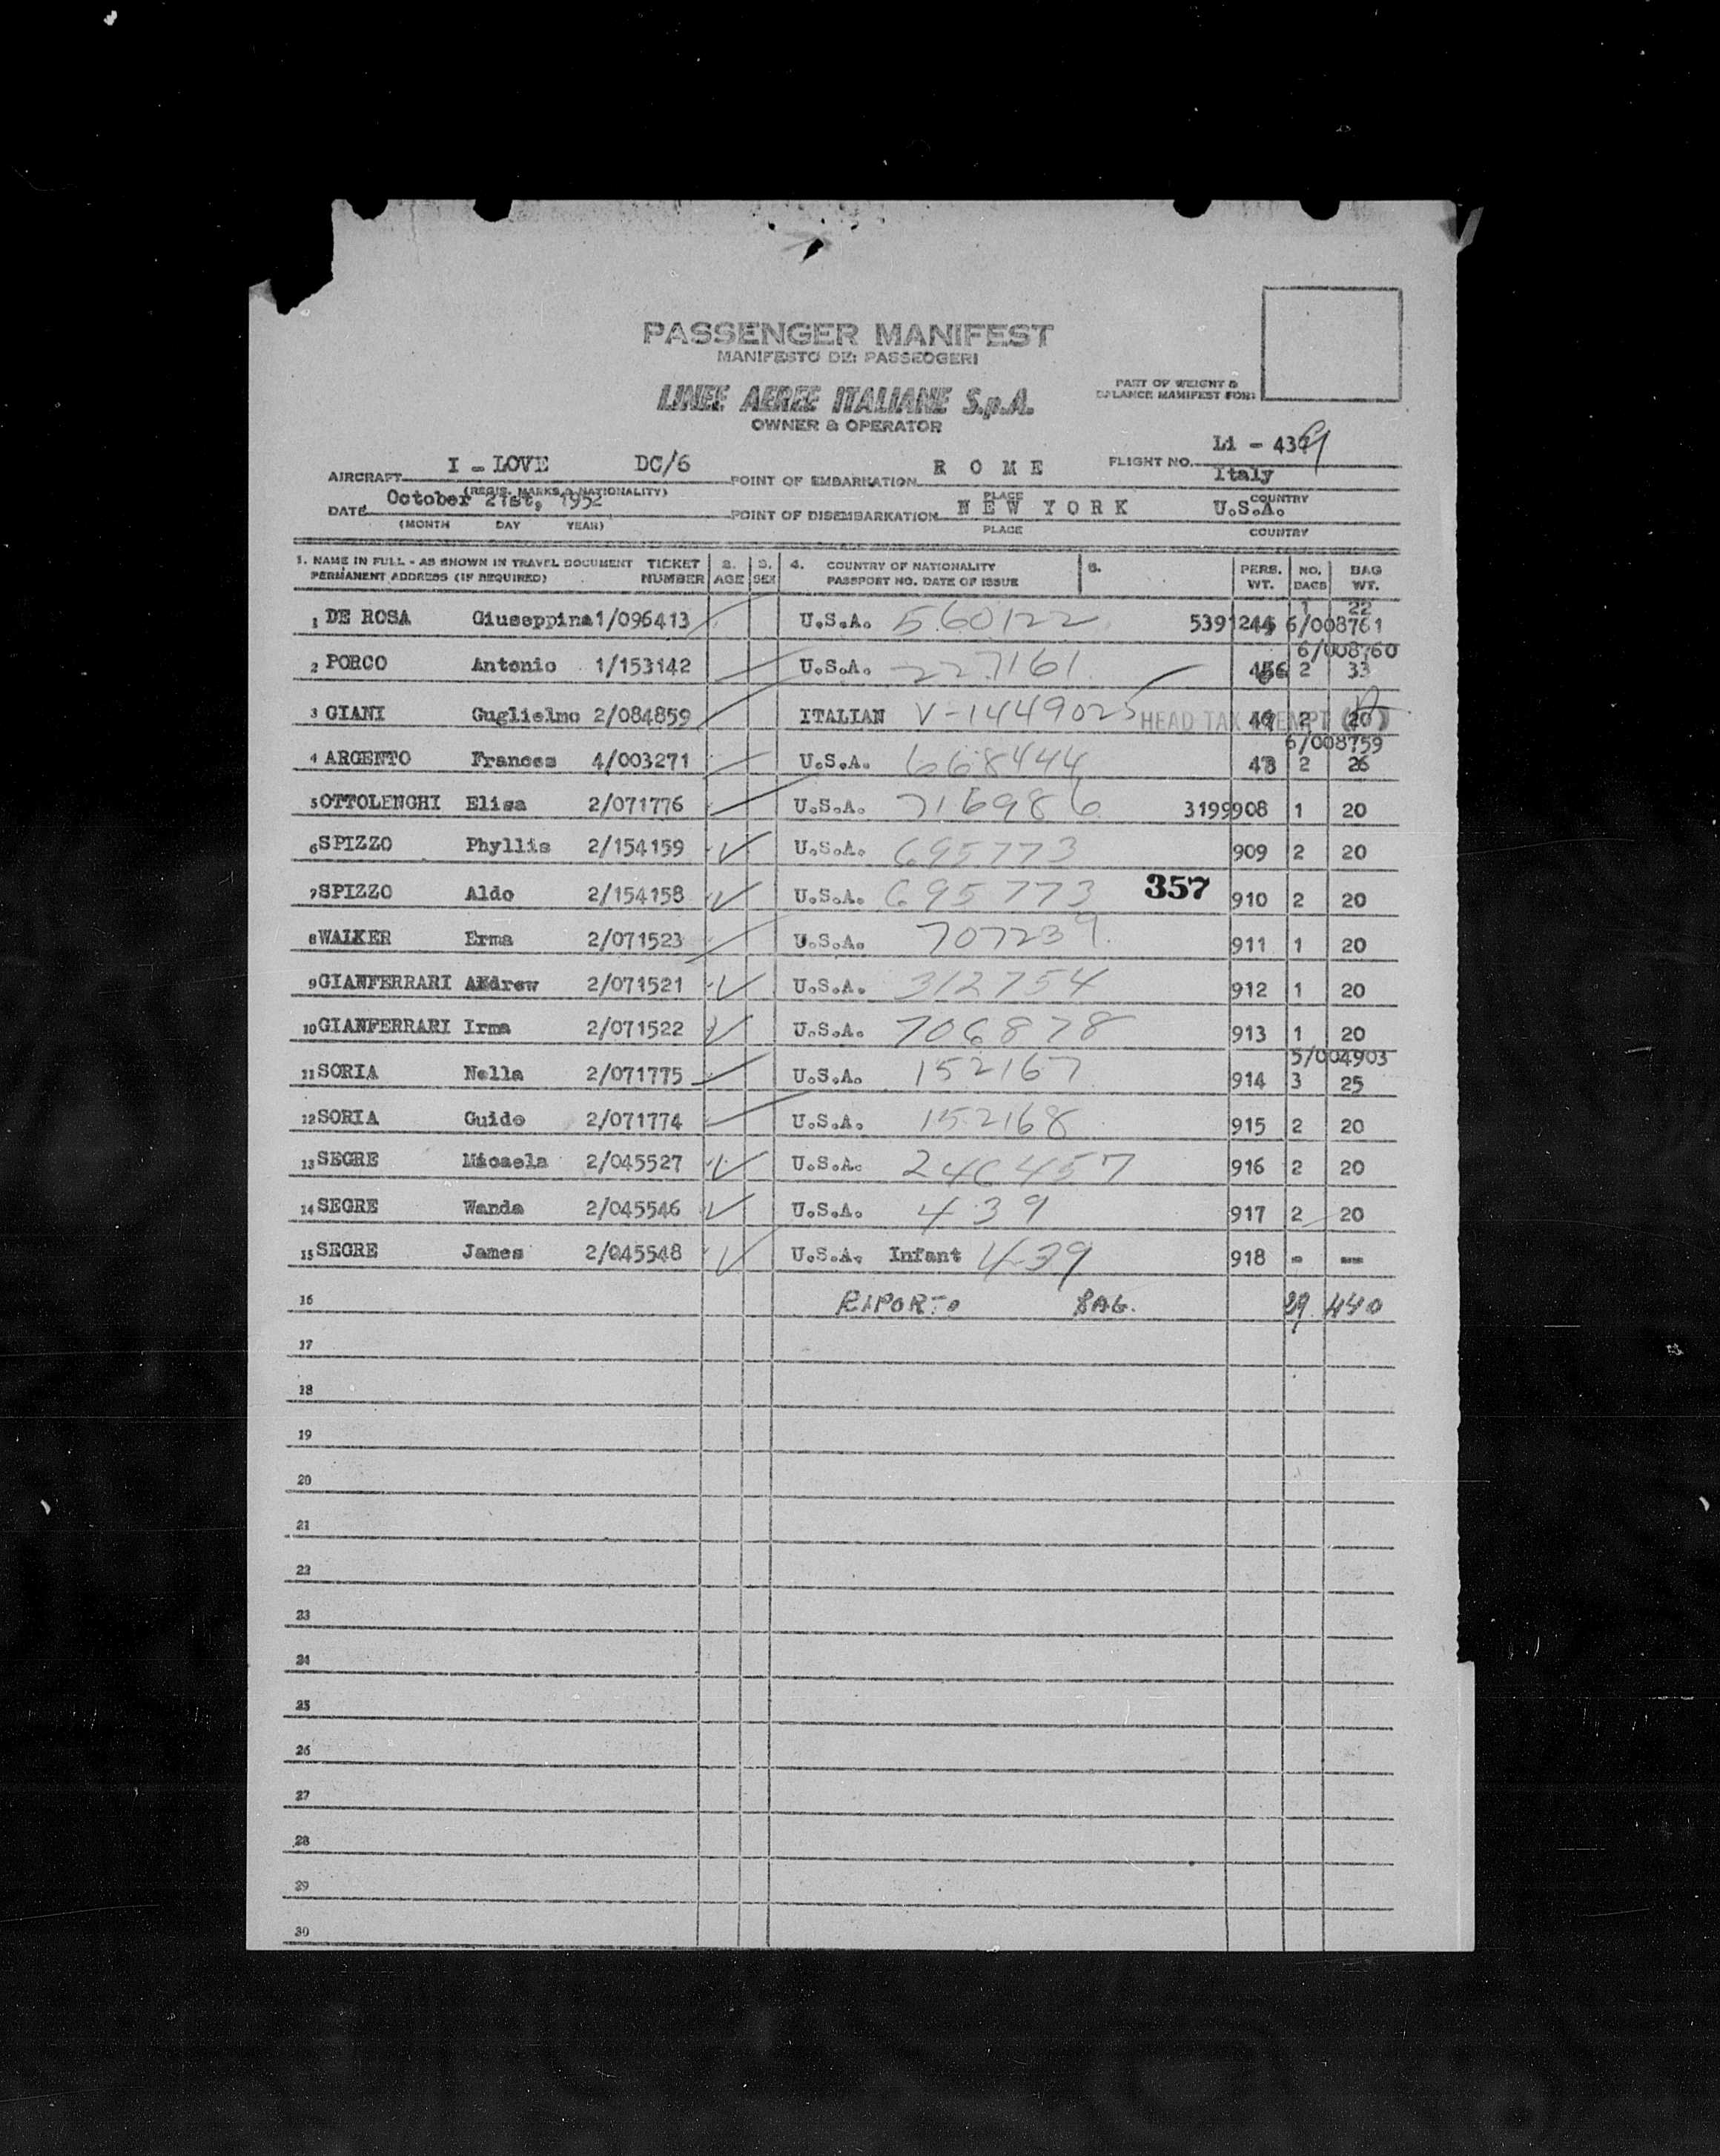 PASSENGER MANIFEST
MANIFESTO DEI PASSEGGERI
LINEE AEREE ITALIANE S.p.A.
OWNER & OPERATOR
PART OF WEIGHT &
BALANCE MANIFEST FOR:
AIRCRAFT I - LOVE DC/6 POINT OF EMBARKATION R O M E FLIGHT NO. Li - 439
Italy
(REGIS. MARKS & NATIONALITY) PLACE COUNTRY
DATE October 21st, 1952 POINT OF DISEMBARKATION N E W Y O R K U.S.A.
(MONTH DAY YEAR) PLACE COUNTRY
1. NAME IN FULL - AS SHOWN IN TRAVEL DOCUMENT TICKET 2. 3. 4. COUNTRY OF NATIONALITY 5. PERS. NO. BAG
PERMANENT ADDRESS (IF REQUIRED) NUMBER AGE SEX PASSPORT NO. DATE OF ISSUE WT. BAGS WT.
1 22
1 DE ROSA Giuseppina 1/096413 U.S.A. 560122 5391244 6/008761
6/008760
2 PORCO Antonio 1/153142 U.S.A. 227161 2 33
3 GIANI Guglielmo 2/084859 ITALIAN V-1449025 HEAD TAX EXEMPT 2 20
6/008759
4 ARGENTO Frances 4/003271 U.S.A. 668444 2 26
5 OTTOLENGHI Elisa 2/071776 U.S.A. 716986 3199908 1 20
6 SPIZZO Phyllis 2/154159 U.S.A. 695773 909 2 20
7 SPIZZO Aldo 2/154158 U.S.A. 695773 357 910 2 20
8 WALKER Erma 2/071523 U.S.A. 707239 911 1 20
9 GIANFERRARI Andrew 2/071521 U.S.A. 312754 912 1 20
10 GIANFERRARI Irma 2/071522 U.S.A. 706878 913 1 20
5/004903
11 SORIA Nella 2/071775 U.S.A. 152167 914 3 25
12 SORIA Guido 2/071774 U.S.A. 152168 915 2 20
13 SEGRE Micaela 2/045527 U.S.A. 246457 916 2 20
14 SEGRE Wanda 2/045546 U.S.A. 439 917 2 20
15 SEGRE James 2/045548 U.S.A. Infant 439 918 - --
16 RIPORTO BAG. 29 440
17
18
19
20
21
22
23
24
25
26
27
28
29
30